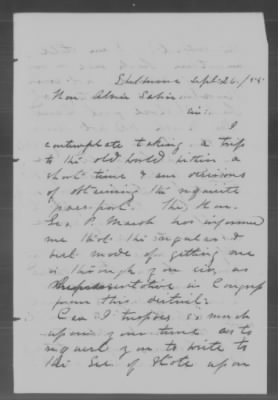 Shelburne Sept. 26./55.
Hon. Alvin Sabin
Sir:
I
contemplate taking a trip
to the old world within a
short time & am desirous
of obtaining the requisite
"pass-port." The Hon.
Geo. P. Marsh has informed
me that the regular &
best mode of getting one
is through you sir, as
Representative in Congress
from this district.
Can I trespass so much
upon your time as to
request you to write to
the Sec. of State upon